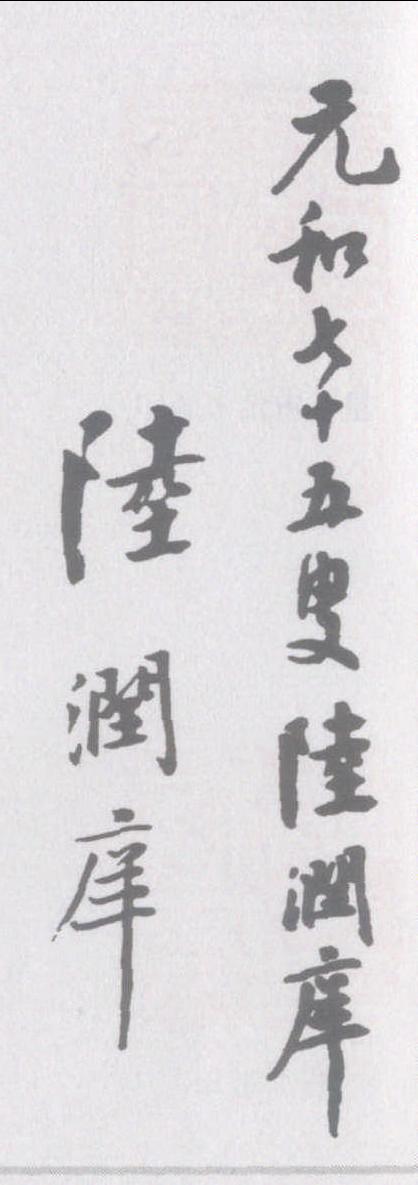 元和七十五叟陸潤庠
陸潤庠